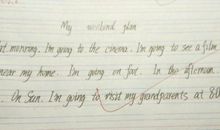 My weekend plan
morning. I'm going to the cinema. I'm going to see a film
near my home. I'm going on foot. In the afternoon
On Sun. I'm going to visit my grandparents at 8:0